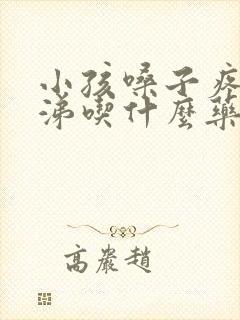 小孩嗓子疼
涕喫什麼藥
高巖趙